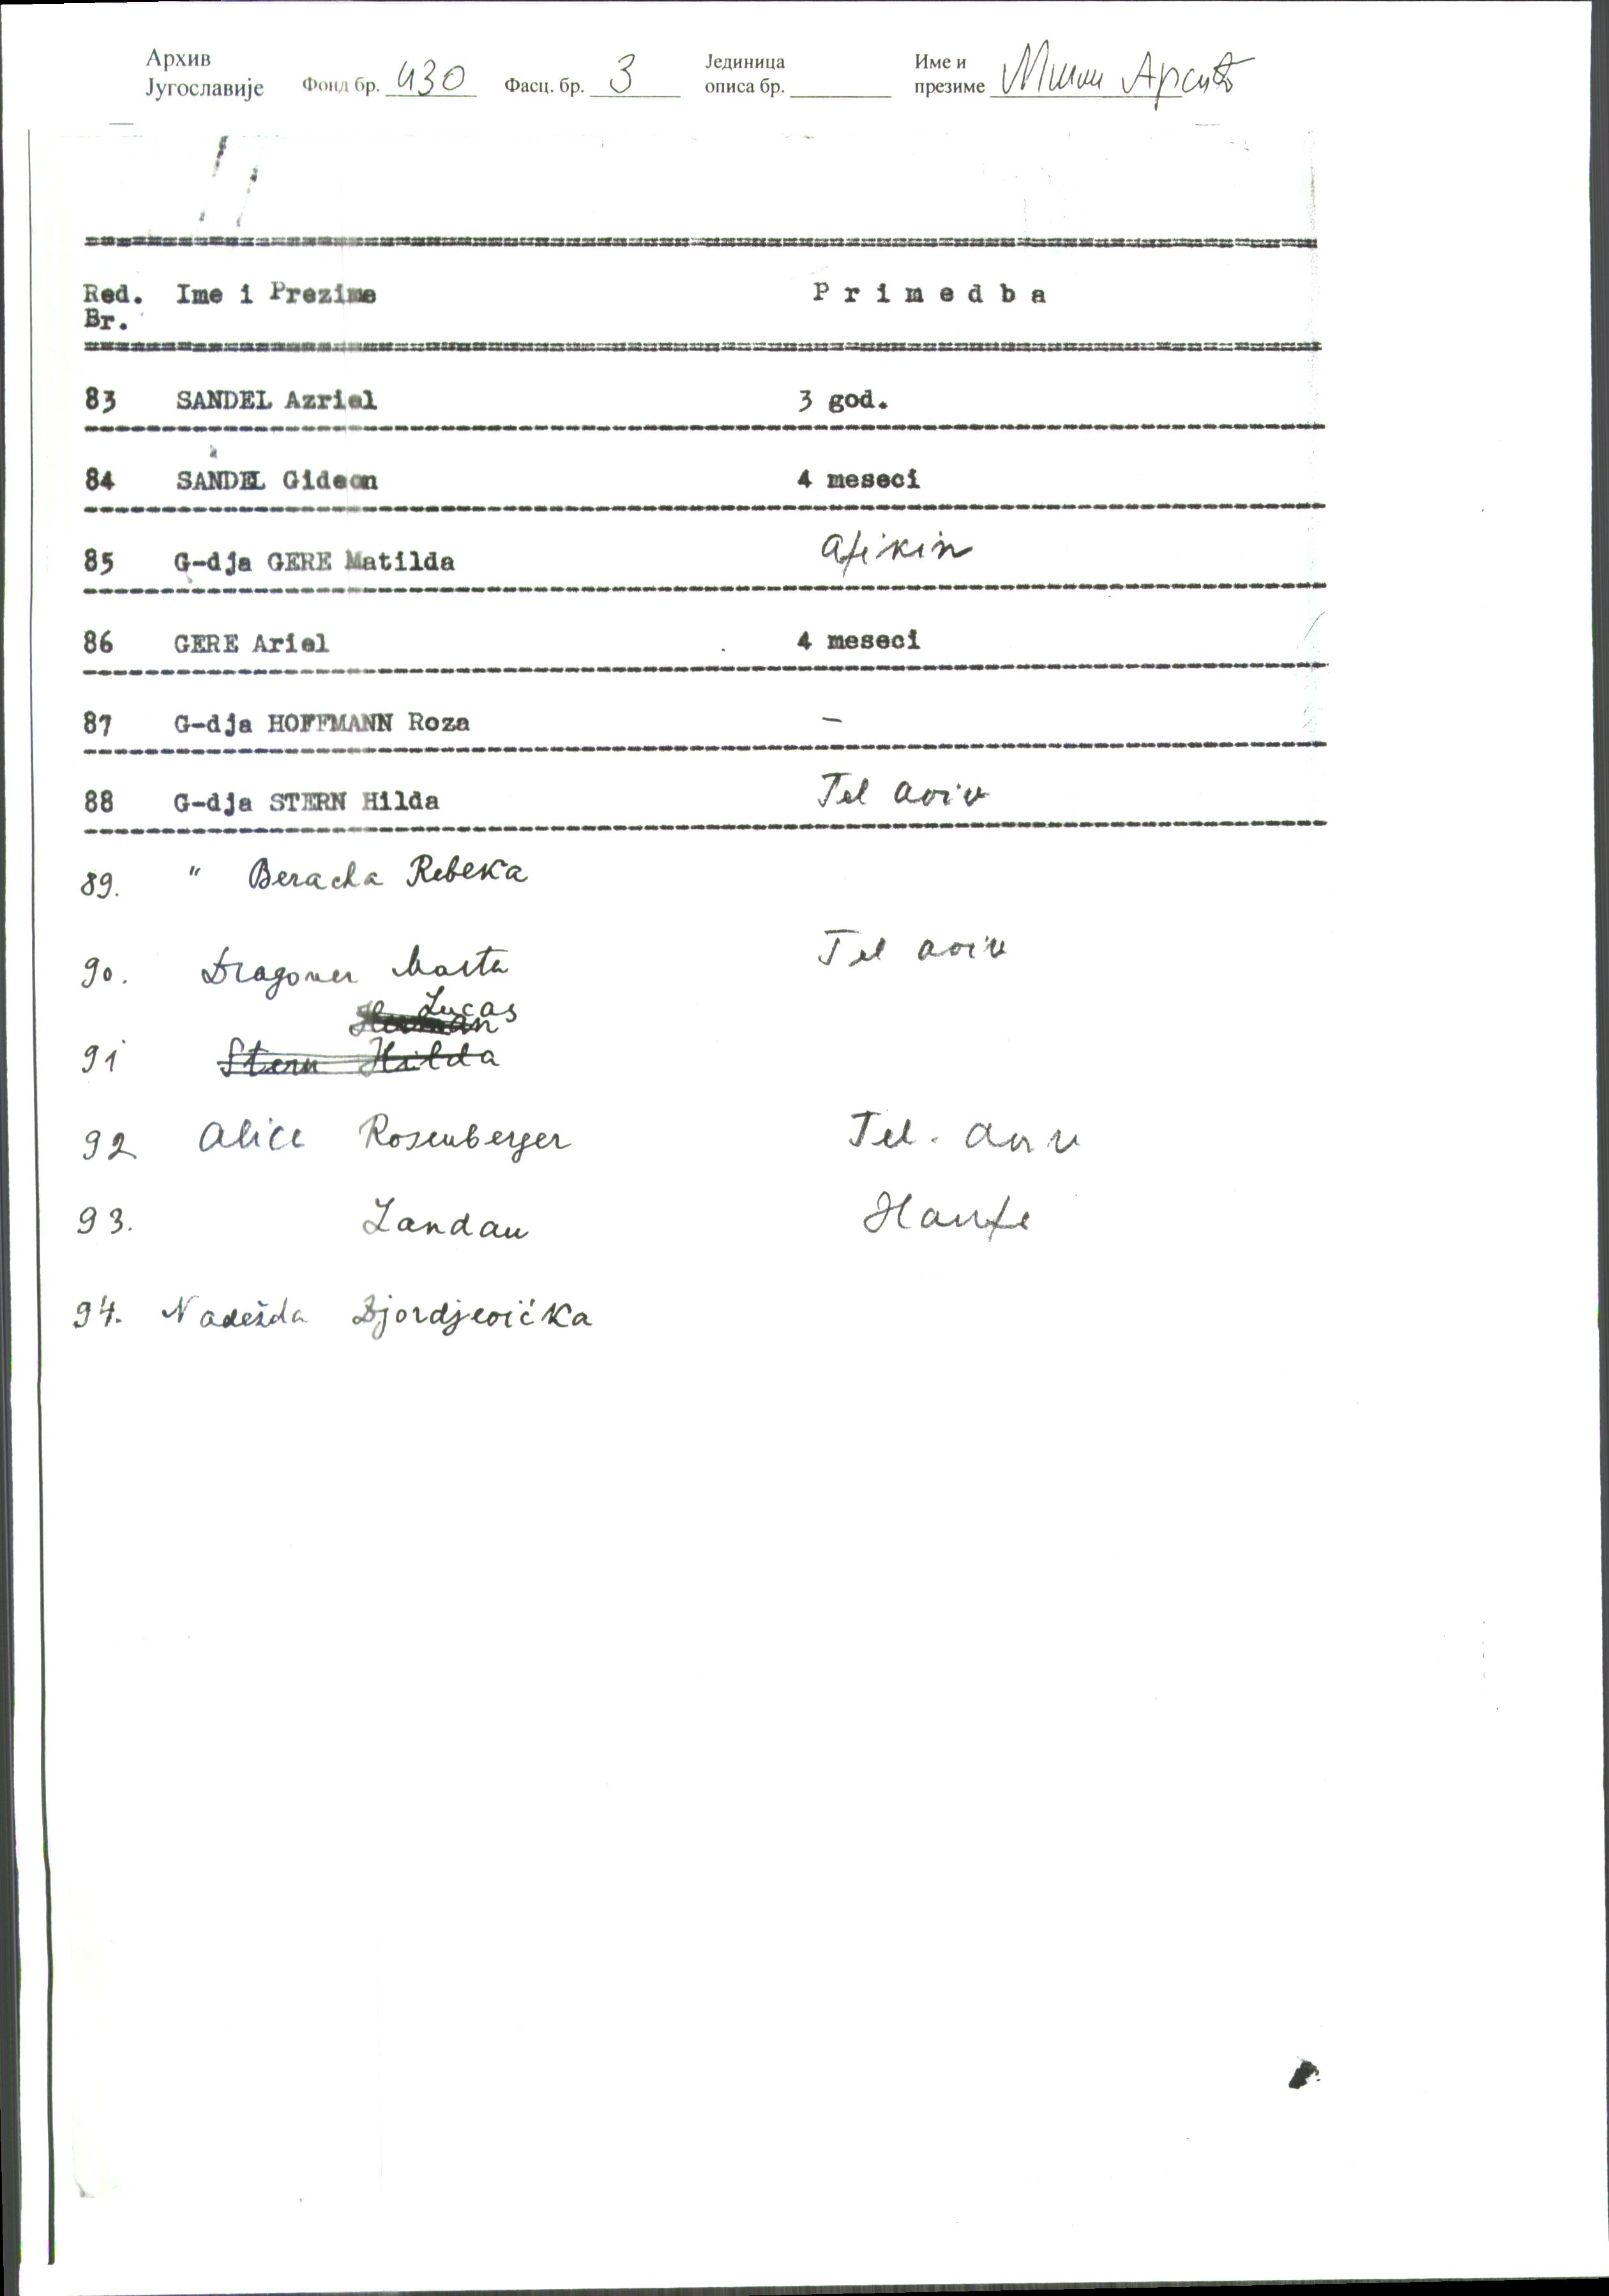 Архив
Југославије Фонд бр. 430 Фасц. бр. 3 Јединица описа бр. Име и презиме Арсић
Red. Br. Ime i Prezime P r i m e d b a
83 SANDEL Azriel 3 god.
84 SANDEL Gideon 4 meseci
85 G-dja GERE Matilda Afikin
86 GERE Ariel 4 meseci
87 G-dja HOFFMANN Roza –
88 G-dja STERN Hilda Tel Aviv
89. " Beracha Rebeka
90. Dragoner Marta Tel Aviv
Lucas
91 Stern Hilda
92 Alice Rosenberger Tel. Aviv
93. Landau
94. Nadežda Djordjevička